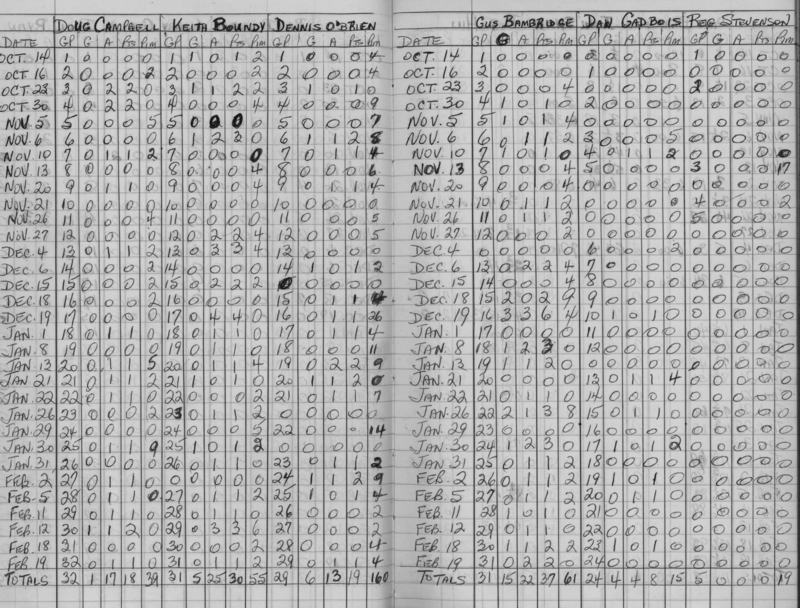 DOUG CAMPBELL KEITH BOUNDY DENNIS O'BRIEN
DATE GP G A Pts Pim GP G A Pts Pim GP G A Pts Pim
OCT. 14 1 0 0 0 0 1 1 0 1 2 1 0 0 0 4
OCT 16 2 0 0 0 2 2 0 0 0 2 2 0 0 0 4
OCT 23 3 0 2 2 0 3 1 1 2 2 3 1 0 1 0
OCT 30 4 0 2 2 0 4 0 0 0 4 4 0 0 0 9
NOV. 5 5 0 0 0 5 5 0 0 0 0 5 0 0 0 7
NOV. 6 6 0 0 0 0 6 1 2 3 0 6 1 1 2 8
NOV. 10 7 0 1 1 2 7 0 0 0 0 7 0 1 1 4
NOV. 13 8 0 0 0 0 8 0 0 0 4 8 0 0 0 6
NOV. 20 9 0 1 1 0 9 0 0 0 4 9 0 1 1 4
NOV. 21 10 0 0 0 0 10 0 0 0 0 10 0 0 0 0
NOV. 26 11 0 0 0 4 11 0 0 0 0 11 0 0 0 5
NOV. 27 12 0 0 0 0 12 0 2 2 4 12 0 0 0 5
DEC. 4 13 0 1 1 2 13 0 3 3 4 13 0 0 0 0
DEC. 6 14 0 0 0 2 14 0 0 0 0 14 1 0 1 2
DEC. 15 15 0 0 0 2 15 0 2 2 2 0 0 0 0 0
DEC. 18 16 0 0 0 2 16 0 0 0 0 15 0 1 1 4
DEC. 19 17 0 0 0 0 17 0 4 4 0 16 0 1 1 26
JAN. 1 18 0 1 1 0 18 0 1 1 0 17 0 1 1 4
JAN. 8 19 0 0 0 0 19 0 1 1 0 18 0 0 0 11
JAN 13 20 0 1 1 5 20 0 1 1 4 19 0 2 2 9
JAN 21 21 0 1 1 2 21 1 0 1 0 20 1 1 2 0
JAN. 22 22 0 1 1 0 22 0 0 0 2 21 0 1 1 7
JAN. 26 23 0 0 0 2 23 0 1 1 2 0 0 0 0 0
JAN. 29 24 0 0 0 0 24 0 0 0 5 22 0 0 0 14
JAN. 30 25 0 1 1 9 25 1 0 1 2 0 0 0 0 0
JAN. 31 26 0 0 0 0 26 0 1 1 0 23 0 1 1 2
FEB. 2 27 0 1 1 0 0 0 0 0 0 24 1 1 2 9
FEB. 5 28 0 1 1 0 27 0 1 1 2 25 1 0 1 4
FEB. 11 29 0 1 1 0 28 0 1 1 0 26 0 0 0 2
FEB. 12 30 1 1 2 0 29 0 3 3 6 27 0 0 0 2
FEB. 18 31 0 0 0 0 30 0 0 0 2 28 0 0 0 4
FEB. 19 32 0 1 1 0 31 0 1 1 2 29 0 1 1 4
TOTALS 32 1 17 18 39 31 5 25 30 55 29 6 13 19 160
GUS BAMBRIDGE DAN GADBOIS REG STEVENSON
DATE GP G A Pts Pim GP G A Pts Pim GP G A Pts Pim
OCT. 14 1 0 0 0 0 0 0 0 0 0 1 0 0 0 0
OCT. 16 2 0 0 0 0 1 0 0 0 0 0 0 0 0 0
OCT. 23 3 0 0 0 4 0 0 0 0 0 2 0 0 0 0
OCT. 30 4 1 0 1 0 2 0 0 0 0 0 0 0 0 0
NOV. 5 5 1 0 1 4 0 0 0 0 0 0 0 0 0 0
NOV. 6 6 0 1 1 2 3 0 0 0 5 0 0 0 0 0
NOV. 10 7 1 0 1 0 4 0 1 1 2 0 0 0 0 0
NOV. 13 8 0 0 0 4 5 0 0 0 0 3 0 0 0 17
NOV. 20 9 0 0 0 4 0 0 0 0 0 0 0 0 0 0
NOV. 21 10 0 1 1 2 0 0 0 0 0 4 0 0 0 2
NOV. 26 11 0 1 1 2 0 0 0 0 0 5 0 0 0 0
NOV. 27 12 0 0 0 2 0 0 0 0 0 0 0 0 0 0
DEC. 4 0 0 0 0 0 6 0 0 0 2 0 0 0 0 0
DEC. 6 13 0 2 2 4 7 0 0 0 0 0 0 0 0 0
DEC. 15 14 0 0 0 4 8 0 0 0 0 0 0 0 0 0
DEC. 18 15 2 0 2 9 9 0 0 0 0 0 0 0 0 0
DEC. 19 16 3 3 6 4 10 1 0 1 0 0 0 0 0 0
JAN. 1 17 0 0 0 0 11 0 0 0 0 0 0 0 0 0
JAN. 8 18 1 2 3 0 12 0 0 0 0 0 0 0 0 0
JAN. 13 19 1 1 2 0 0 0 0 0 0 0 0 0 0 0
JAN. 21 20 0 0 0 0 13 0 1 1 4 0 0 0 0 0
JAN. 22 21 0 1 1 0 14 0 0 0 0 0 0 0 0 0
JAN. 26 22 2 1 3 8 15 0 1 1 0 0 0 0 0 0
JAN. 29 23 0 0 0 0 16 0 0 0 0 0 0 0 0 0
JAN. 30 24 1 2 3 0 17 1 0 1 2 0 0 0 0 0
JAN. 31 25 0 1 1 2 18 0 0 0 0 0 0 0 0 0
FEB. 2 26 0 1 1 2 19 1 0 1 0 0 0 0 0 0
FEB. 5 27 0 1 1 2 20 0 1 1 0 0 0 0 0 0
FEB. 11 28 1 0 1 0 21 0 0 0 0 0 0 0 0 0
FEB. 12 29 0 1 1 0 22 0 0 0 0 0 0 0 0 0
FEB. 18 30 1 1 2 2 23 1 0 1 0 0 0 0 0 0
FEB. 19 31 0 2 2 0 24 0 0 0 0 0 0 0 0 0
TOTALS 31 15 22 37 61 24 4 4 8 15 5 0 0 0 19